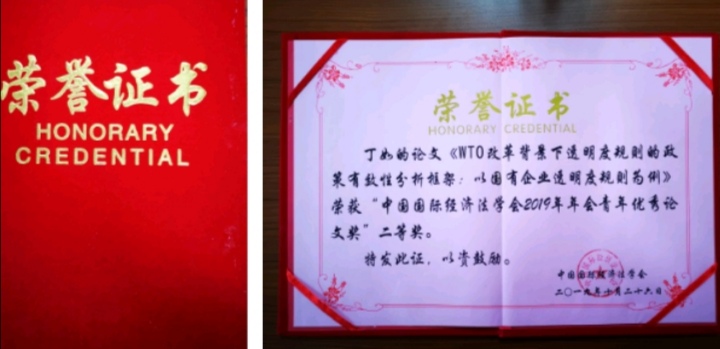 荣誉证书
HONORARY
CREDENTIAL
荣誉证书
HONORARY CREDENTIAL
丁如的论文《WTO改革背景下透明度规则的政
策有效性分析框架：以国有企业透明度规则为例》
荣获“中国国际经济法学会2019年年会青年优秀论
文奖”二等奖。
特发此证，以资鼓励。
中国国际经济法学会
二〇一九年十月二十六日